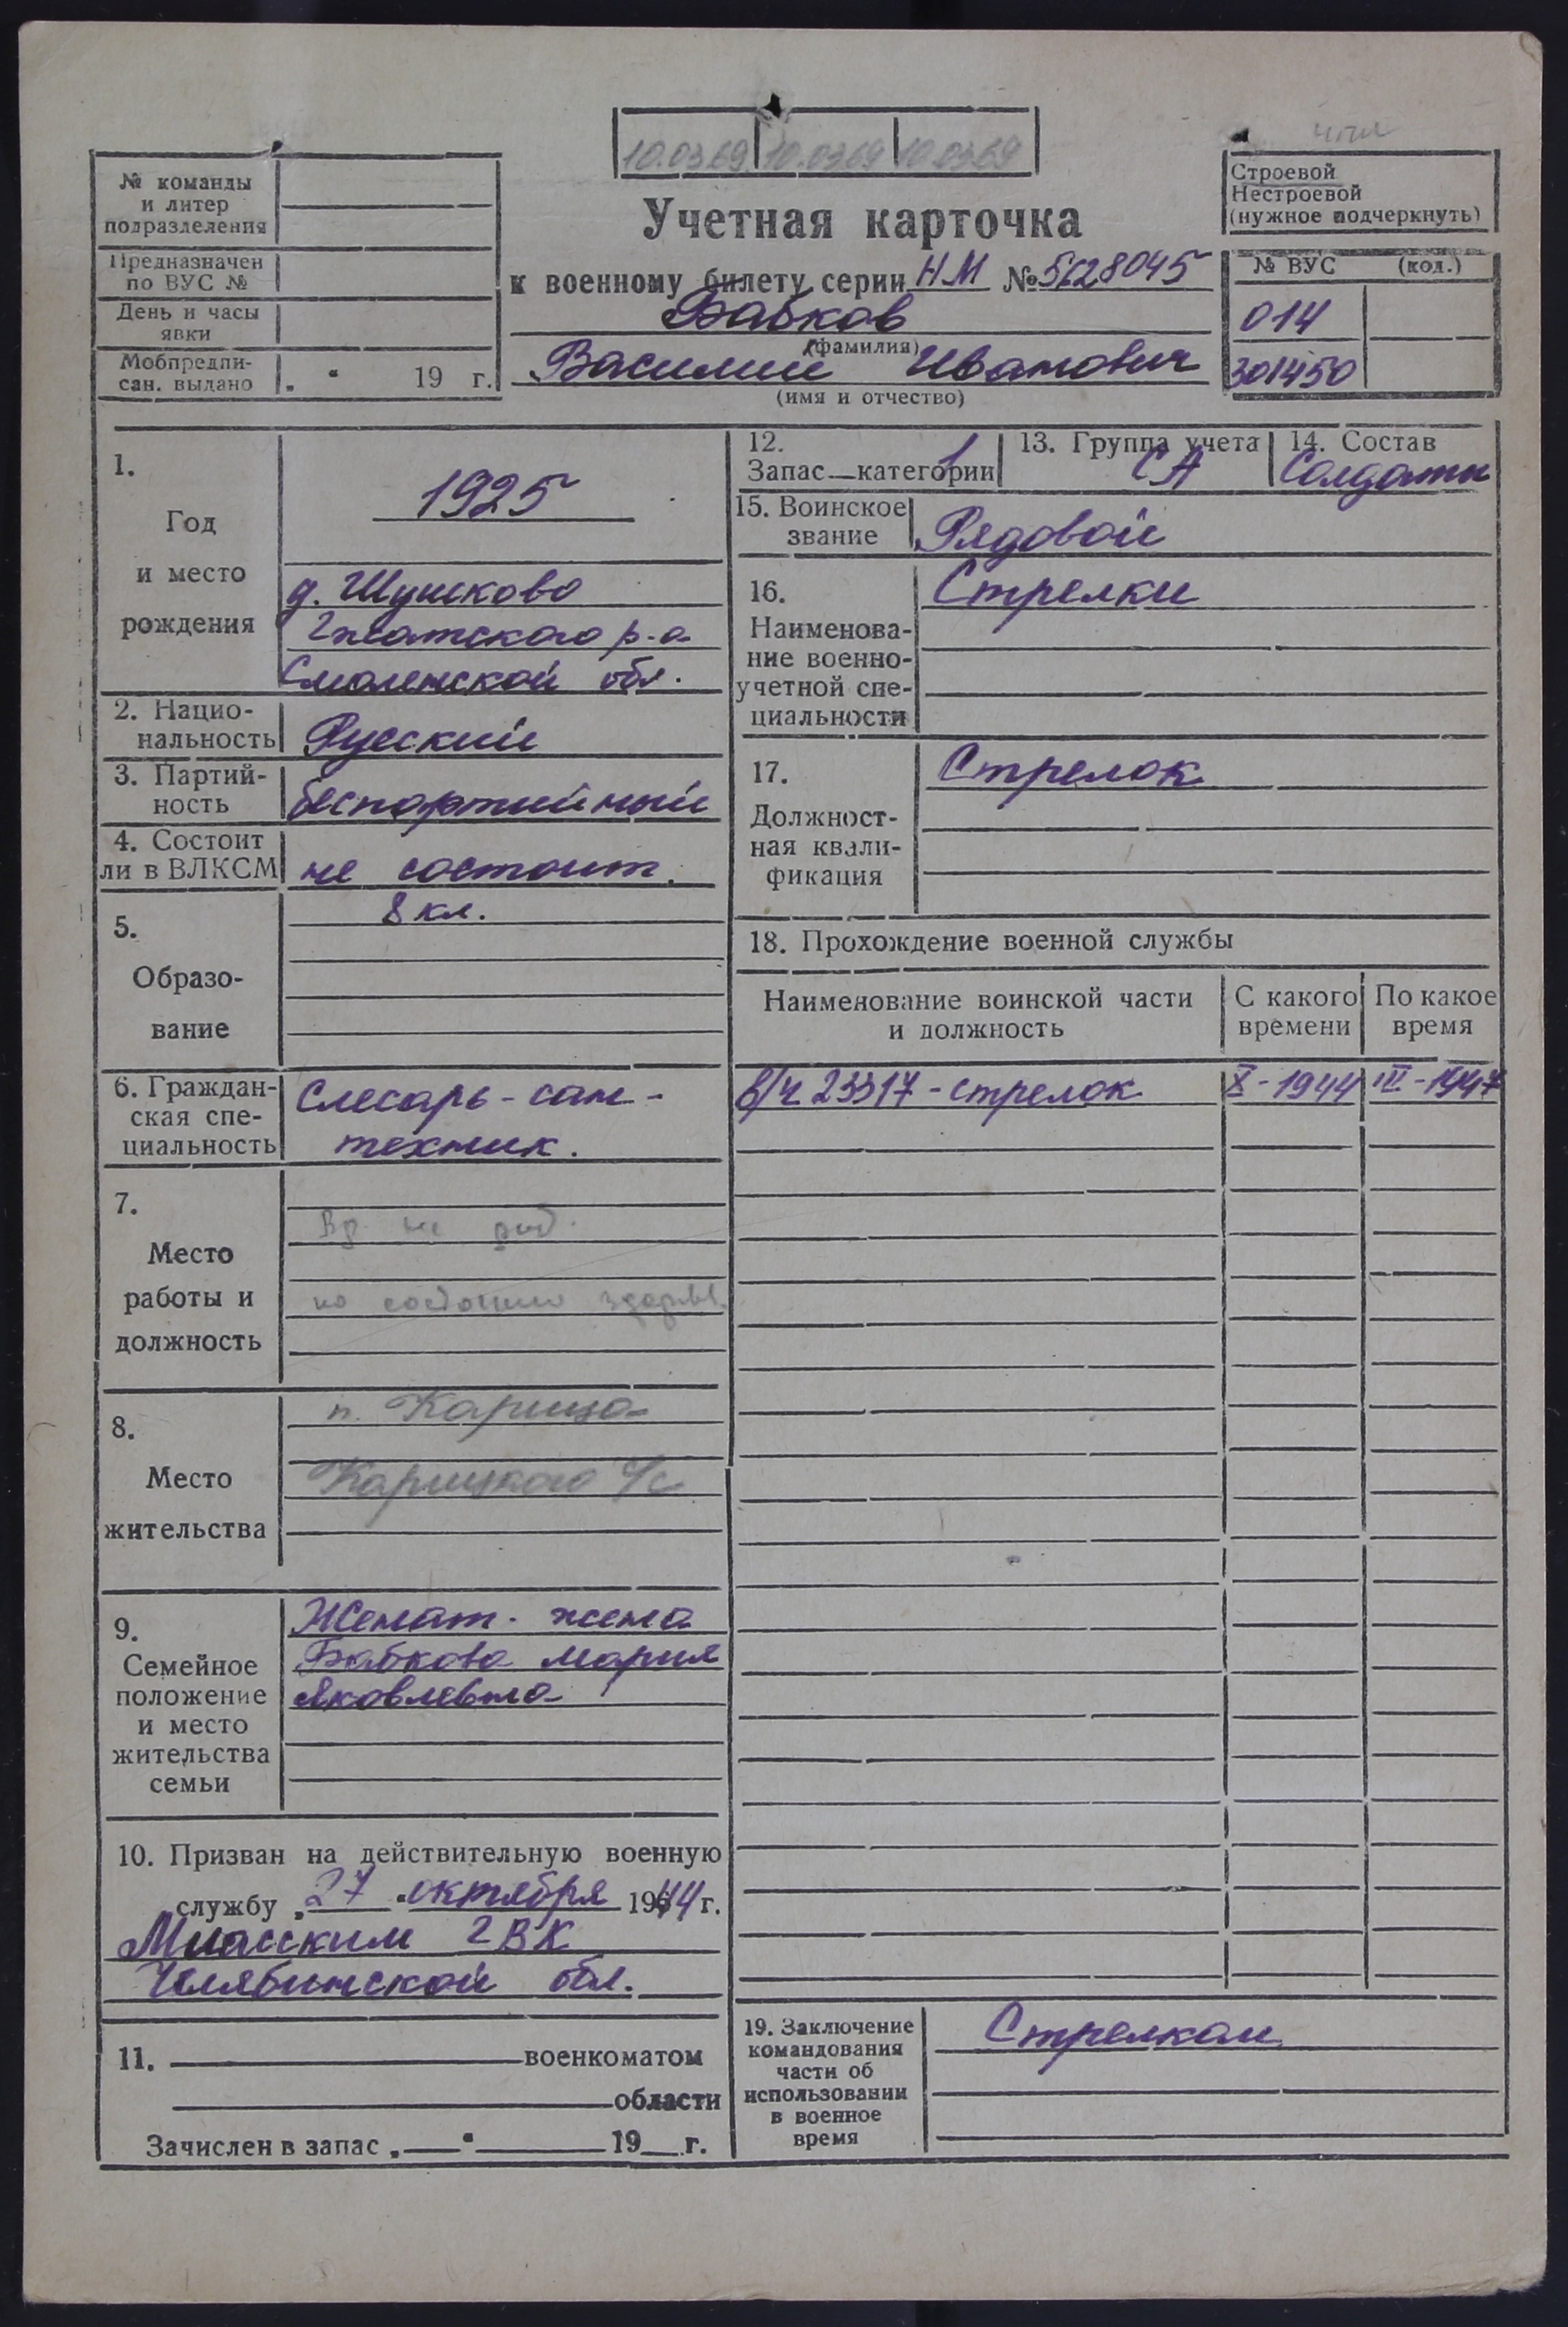 10.03.69 10.03.69 10.03.69
№ команды
и литер
подразделения
Предназначен
по ВУС №
День и часы
явки
Мобпредпи-
сан. выдано „ “ 19 г.
Учетная карточка
к военному билету серии НМ № 5628045
Бабков
(фамилия)
Василий Иванович
(имя и отчество)
Строевой
Нестроевой
(нужное подчеркнуть)
№ ВУС (код.)
014
301450
1.
Год
и место
рождения
1925
д. Шушково
Гжатского р-а
Смоленской обл.
2. Нацио-
нальность
Русский
3. Партий-
ность
беспартийный
4. Состоит
ли в ВЛКСМ
не состоит.
5.
Образо-
вание
8 кл.
6. Граждан-
ская спе-
циальность
Слесарь-сан-
техник.
7.
Место
работы и
должность
не
по здоров.
8.
Место
жительства
п. Карица
Карицкого с/с
9.
Семейное
положение
и место
жительства
семьи
Женат - жена
Бабкова Мария
Яковлевна
10. Призван на действительную военную
службу „27“ октября 1944 г.
Миасским ГВК
Челябинской обл.
11. военкоматом
области
Зачислен в запас „ “ 19 г.
12.
Запас—категории 1
13. Группа учета
СА
14. Состав
Солдаты
15. Воинское
звание
Рядовой
16.
Наименова-
ние военно-
учетной спе-
циальности
Стрелки
17.
Должност-
ная квали-
фикация
Стрелок
18. Прохождение военной службы
Наименование воинской части
и должность
С какого
времени
По какое
время
в/ч 23317 - стрелок X-1944 III-1947
19. Заключение
командования
части об
использовании
в военное
время
Стрелком